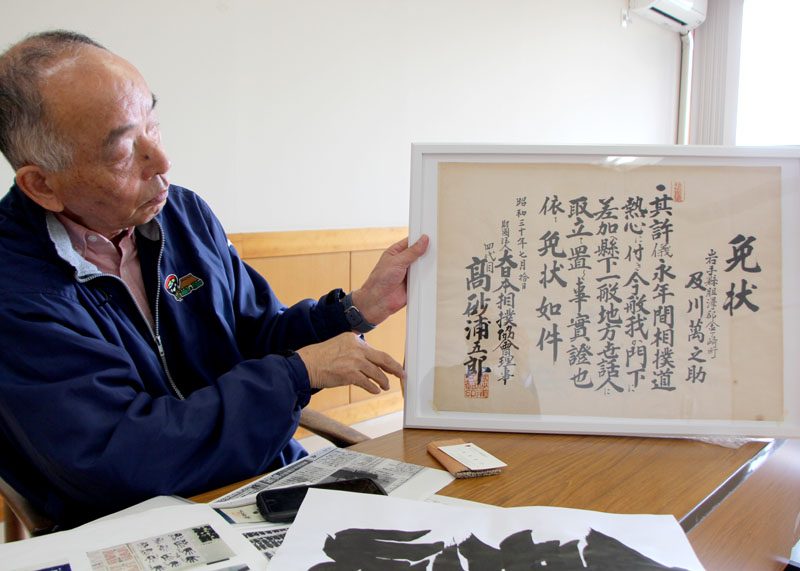 免状
岩手縣膽澤郡金ヶ崎町
及川萬之助
其許儀永年間相撲道
熱心ニ付き今般我門下ニ
差加縣下一般地方世話人ニ
取立置く事実證也
依て免状如件
昭和三十年七月拾日
財團法人大日本相撲協會理事
四代目
高砂浦五郎